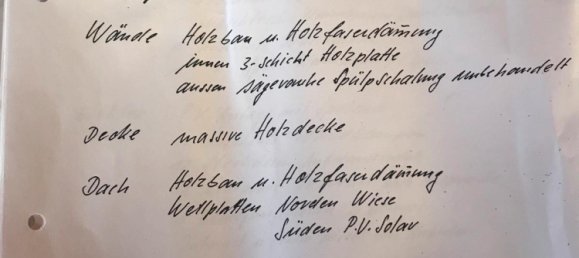 Wände Holzbau u. Holzfaserdämmung
innen 3-schicht Holzplatte
aussen sägerauhe Spülpschalung unbehandelt
Decke massive Holzdecke
Dach Holzbau u. Holzfaserdämmung
Wellplatten Norden Wiese
Süden P.V. Solar